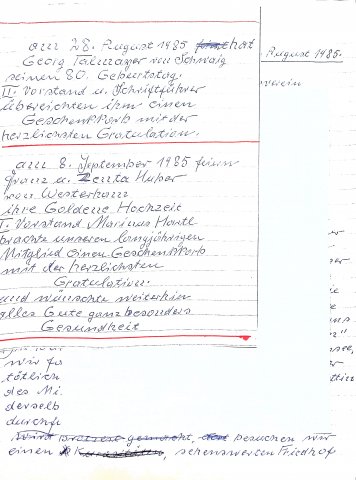 am 28. August 1985 hat
Georg Talmayer von Schwaig
seinen 80. Geburtstag.
II. Vorstand u. Schriftführer
übereichten ihm einen
Geschenkkorb mit der
herzlichsten Gratulation.
August 1985.
verein
am 8. September 1985 feiern
Franz u. Zenta Huber
von Westerham
ihre Goldene Hochzeit
I. Vorstand Marinus Hartl
brachte unseren langjährigen
Mitglied einen Geschenkkorb
mit der herzlichsten
Gratulation.
und wünschte weiterhin
alles Gute ganz besonders
Gesundheit
wir fa
tötlich
des Mi
derselb
durchfu
wird gemacht, besuchen wir
einen sehenswerten Friedhof